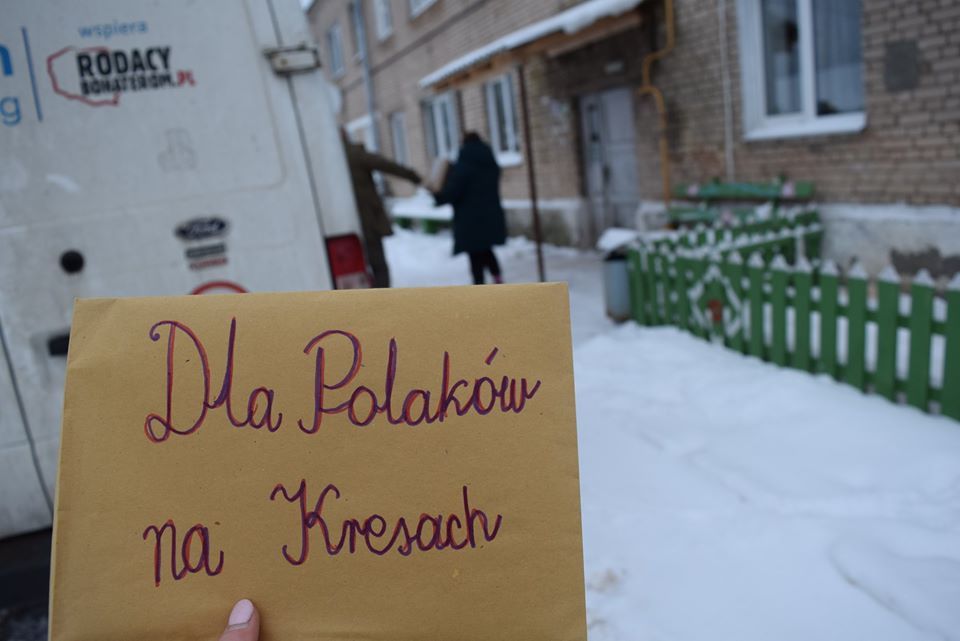 wspiera
RODACY
BOHATEROM.PL
Ford
Dla Polaków
na Kresach